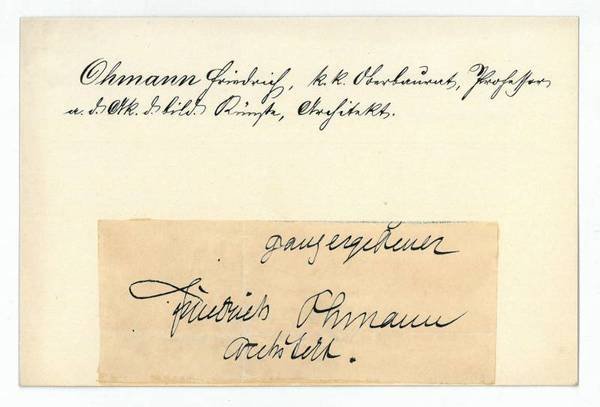 Ohmann Friedrich, k. k. Oberbaurat, Professor
a. d. Ak. d. bild. Künste, Architekt.
ganz ergebener
Friedrich Ohmann
Architekt.